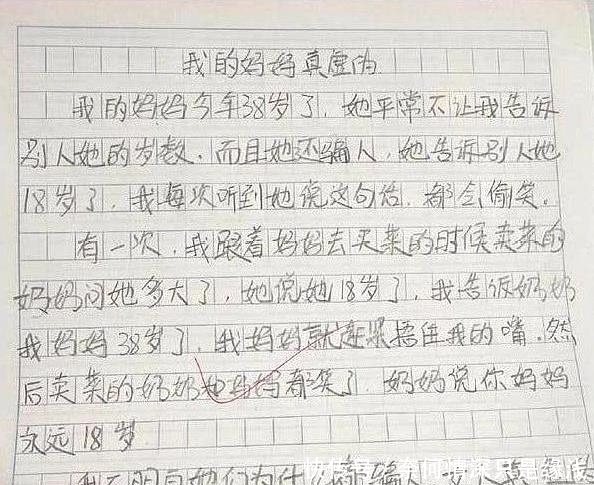 我的妈妈真虚伪
我的妈妈今年38岁了，她平常不让我告诉
别人她的岁数，而且她还骗人，她告诉别人她
18岁了，我每次听到她说这句话，都会偷笑。
有一次，我跟着妈妈去买菜的时候卖菜的
奶奶问她多大了，她说她18岁了，我告诉奶奶
我妈妈38岁了，我妈妈就赶紧捂住我的嘴，然
后卖菜的奶奶和妈妈都笑了，奶奶说你妈妈
永远18岁
我不明白她们为什么都骗人